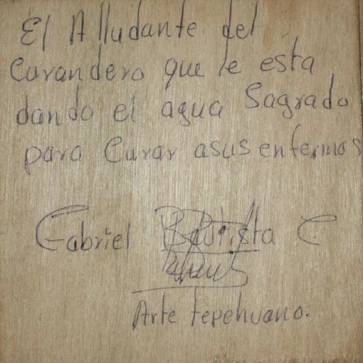 El Alludante del
Curandero que le esta
dando el agua Sagrado
para Curar asus enfermos
Gabriel Bautista C
Arte tepehuano.